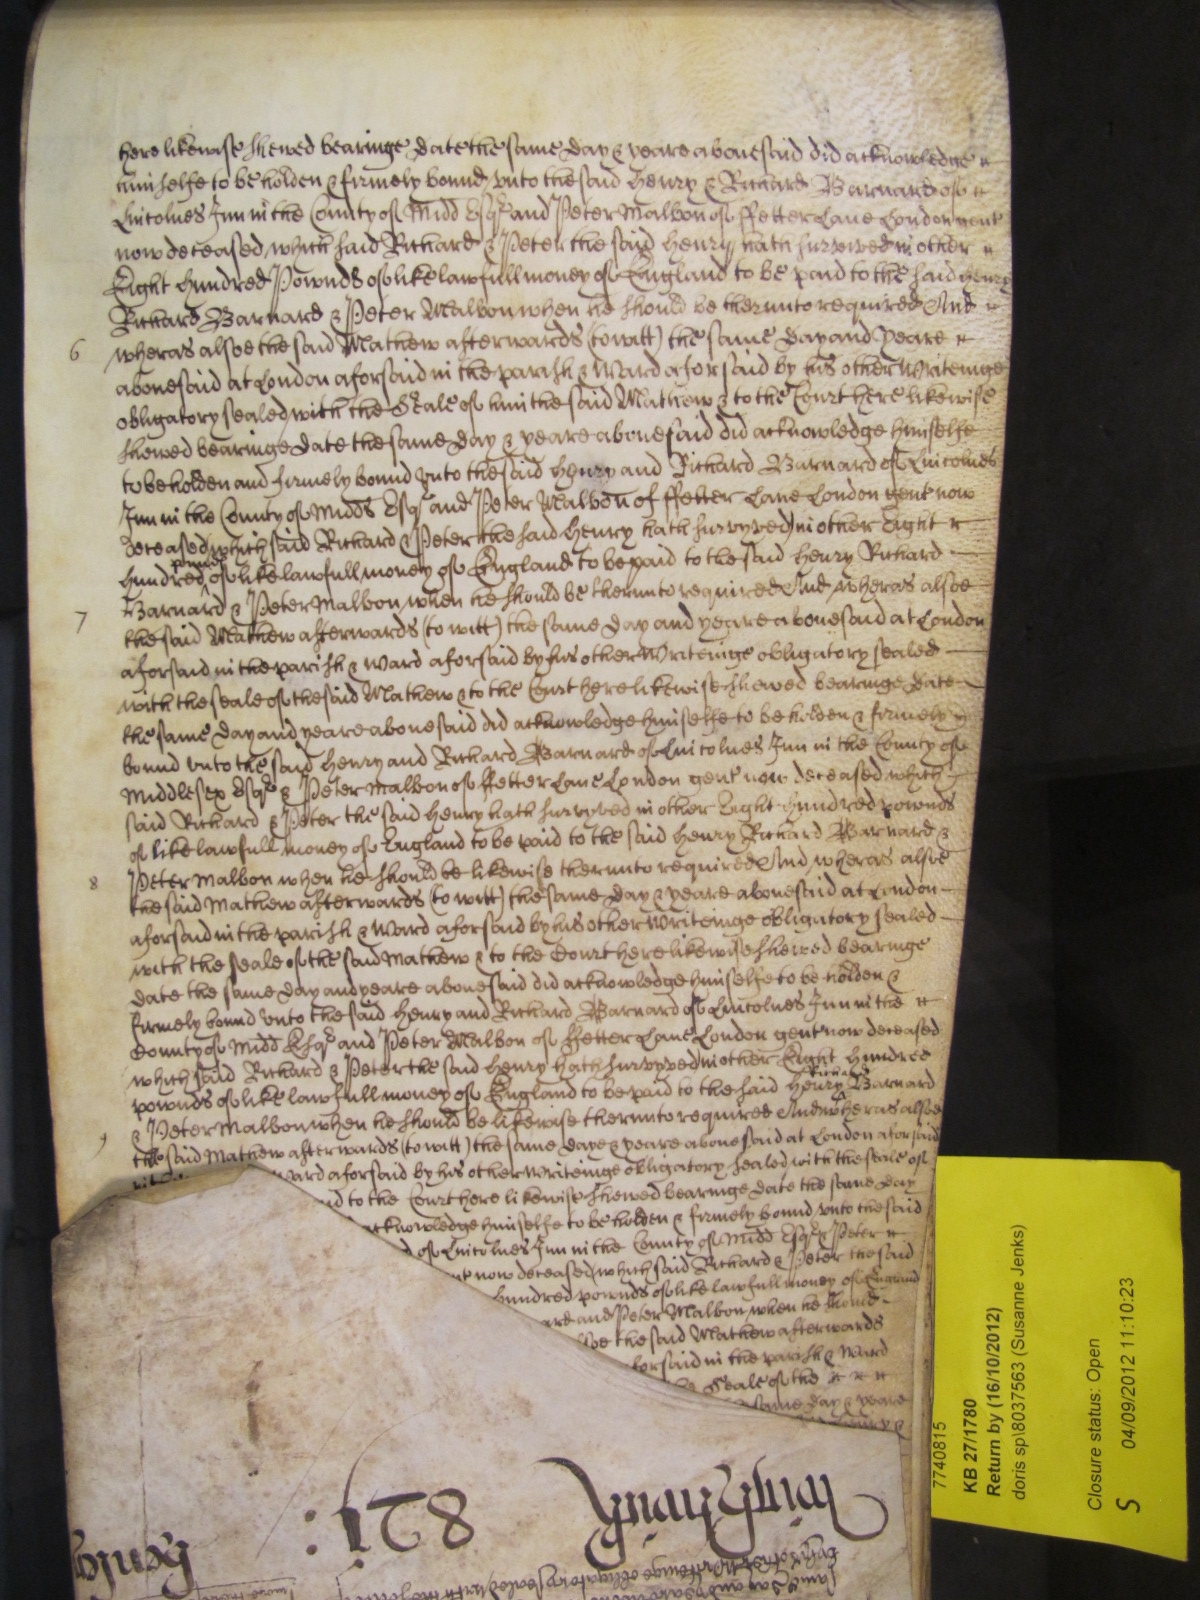 here likewise shewed bearinge date the same day & yeare abovesaid did acknowledge
himselfe to be holden & firmely bound unto the said Henry & Richard Barnard of
Lincolnes Inn in the County of Midd Esqr and Peter Malbon of ffetter Lane London gent
now deceased, which said Richard & Peter the said Henry hath survived in other
Eight hundred Pownds of like lawfull money of England to be paid to the said Henry
Richard Barnard & Peter Malbon when he should be therunto required And
6 wheras alsoe the said Mathew afterwards (to witt) the same day and yeare
abovesaid at London aforsaid in the parish & Ward aforsaid by his other Writeinge
obligatory sealed with the Seale of him the said Mathew & to the Court here likewise
shewed bearinge date the same day & yeare abovesaid did acknowledge himselfe
to be holden and firmely bound unto the said Henry and Richard Barnard of Lincolnes
Inn in the County of Midds Esqr and Peter Malbon of ffetter Lane London gent now
deceased which said Richard & Peter the said Henry hath survyved in other Eight
hundred pownds of like lawfull money of England to be paid to the said Henry Richard
Barnard & Peter Malbon when he should be therunto required And wheras alsoe
7 the said Mathew afterwards (to witt) the same day and yeare abovesaid at London
aforsaid in the parish & ward aforsaid by his other Writeinge obligatory sealed
with the seale of the said Mathew & to the Court here likewise shewed bearinge date
the same day and yeare abovesaid did acknowledge himselfe to be holden & firmely
bound unto the said Henry and Richard Barnard of Lincolnes Inn in the County of
Middlesex Esqr & Peter Malbon of ffetter Lane London gent now deceased which
said Richard & Peter the said Henry hath survyved in other Eight hundred pownds
of like lawfull money of England to be paid to the said Henry Richard Barnard &
Peter Malbon when he should be likewise therunto required And wheras alsoe
8 the said Mathew afterwards (to witt) the same day & yeare abovesaid at London
aforsaid in the parish & Ward aforsaid by his other Writeinge obligatory sealed
with the seale of the said Mathew & to the Court here likewise shewed bearinge
date the same day and yeare abovesaid did acknowledge himselfe to be holden &
firmely bound unto the said Henry and Richard Barnard of Lincolnes Inn in the
County of Midd Esqr and Peter Malbon of ffetter Lane London gent now deceased
which said Richard & Peter the said Henry hath survyved in other Eight hundred
pownds of like lawfull money of England to be paid to the said Henry Richard Barnard
& Peter Malbon when he should be likewise therunto required And wheras alsoe
9 the said Mathew afterwards (to witt) the same daye & yeare abovesaid at London aforsaid
ward aforsaid by his other Writeinge obligatory sealed with the seale of
to the Court here likewise shewed bearinge date the same day
acknowledge himselfe to be holden & firmely bound unto the said
of Lincolnes Inn in the County of Midd Esqr & Peter
now deceased which said Richard & Peter the said
hundred pownds of like lawfull money of England
and Peter Malbon when he should
the said Mathew afterwards
aforsaid in the parish & Ward
Seale of the
same day & yeare
821
7740815
KB 27/1780
Return by (16/10/2012)
doris sp\8037563 (Susanne Jenks)
Closure status: Open
04/09/2012 11:10:23
S